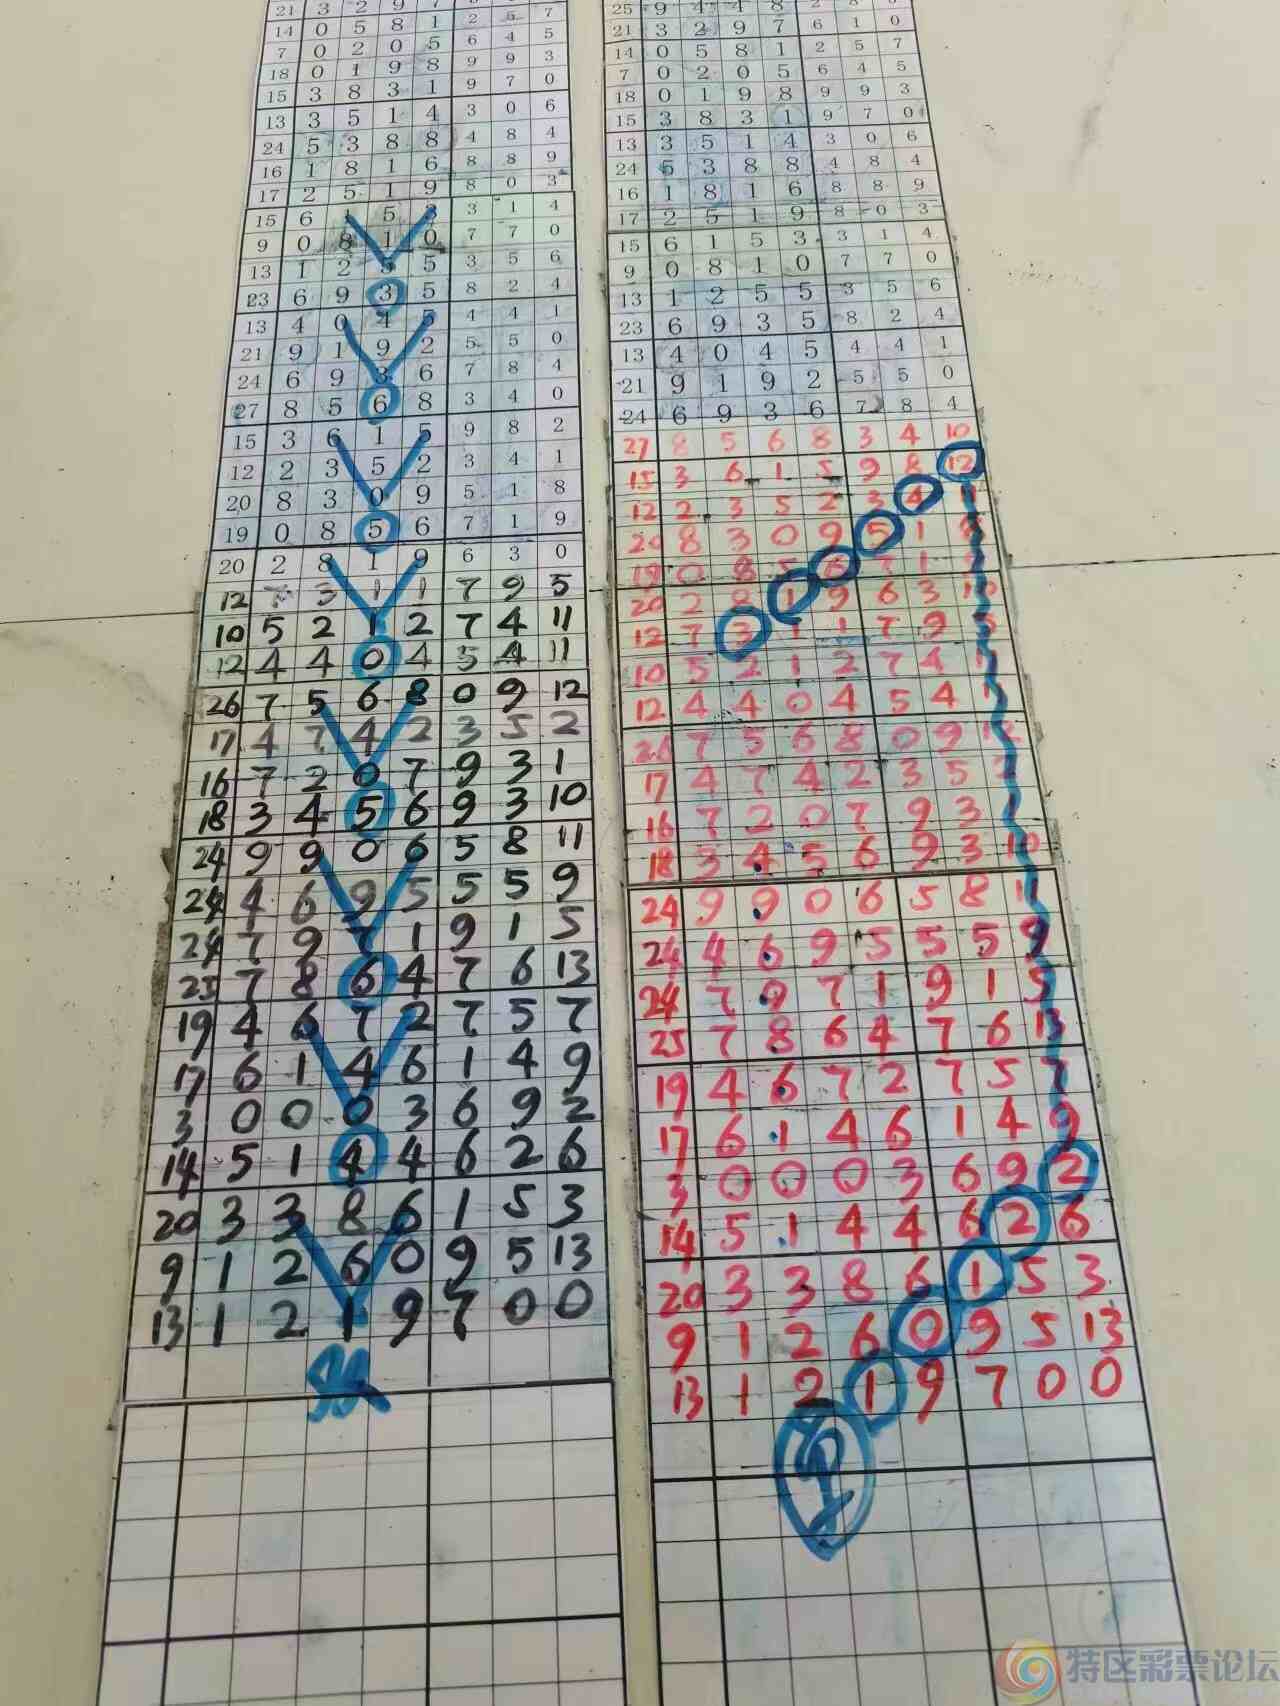 21 3 2 9 7
14 0 5 8 1 2 5 7
7 0 2 0 5 6 4 5
18 0 1 9 8 9 9 3
15 3 8 3 1 9 7 0
13 3 5 1 4 3 0 6
24 5 3 8 8 4 8 4
16 1 8 1 6 8 8 9
17 2 5 1 9 8 0 3
15 6 1 5 3 3 1 4
9 0 8 1 0 7 7 0
13 1 2 5 5 3 5 6
23 6 9 3 5 8 2 4
13 4 0 4 5 4 4 1
21 9 1 9 2 5 5 0
24 6 9 3 6 7 8 4
27 8 5 6 8 3 4 0
15 3 6 1 5 9 8 2
12 2 3 5 2 3 4 1
20 8 3 0 9 5 1 8
19 0 8 5 6 7 1 9
20 2 8 1 9 6 3 0
12 7 3 1 1 7 9 5
10 5 2 1 2 7 4 11
12 4 4 0 4 5 4 11
26 7 5 6 8 0 9 12
17 4 7 4 2 3 5 2
16 7 2 0 7 9 3 1
18 3 4 5 6 9 3 10
24 9 9 0 6 5 8 11
24 4 6 9 5 5 5 9
24 7 9 7 1 9 1 5
25 7 8 6 4 7 6 13
19 4 6 7 2 7 5 7
17 6 1 4 6 1 4 9
3 0 0 0 3 6 9 2
14 5 1 4 4 6 2 6
20 3 3 8 6 1 5 3
9 1 2 6 0 9 5 13
13 1 2 1 9 7 0 0
25 9 4 4 8
21 3 2 9 7 6 1 0
14 0 5 8 1 2 5 7
7 0 2 0 5 6 4 5
18 0 1 9 8 9 9 3
15 3 8 3 1 9 7 0
13 3 5 1 4 3 0 6
24 5 3 8 8 4 8 4
16 1 8 1 6 8 8 9
17 2 5 1 9 8 0 3
15 6 1 5 3 3 1 4
9 0 8 1 0 7 7 0
13 1 2 5 5 3 5 6
23 6 9 3 5 8 2 4
13 4 0 4 5 4 4 1
21 9 1 9 2 5 5 0
24 6 9 3 6 7 8 4
27 8 5 6 8 3 4 10
15 3 6 1 5 9 8 12
12 2 3 5 2 3 4
20 8 3 0 9 5 1
19 0 8 5 6 7 1
20 2 8 1 9 6 3 10
12 7 3 1 1 7 9 5
10 5 2 1 2 7 4
12 4 4 0 4 5 4
26 7 5 6 8 0 9 12
17 4 7 4 2 3 5 2
16 7 2 0 7 9 3 1
18 3 4 5 6 9 3 10
24 9 9 0 6 5 8
24 4 6 9 5 5 5 9
24 7 9 7 1 9 1 5
25 7 8 6 4 7 6 13
19 4 6 7 2 7 5 7
17 6 1 4 6 1 4 9
3 0 0 0 3 6 9 2
14 5 1 4 4 6 2 6
20 3 3 8 6 1 5 3
9 1 2 6 0 9 5 13
13 1 2 1 9 7 0 0
特区彩票论坛